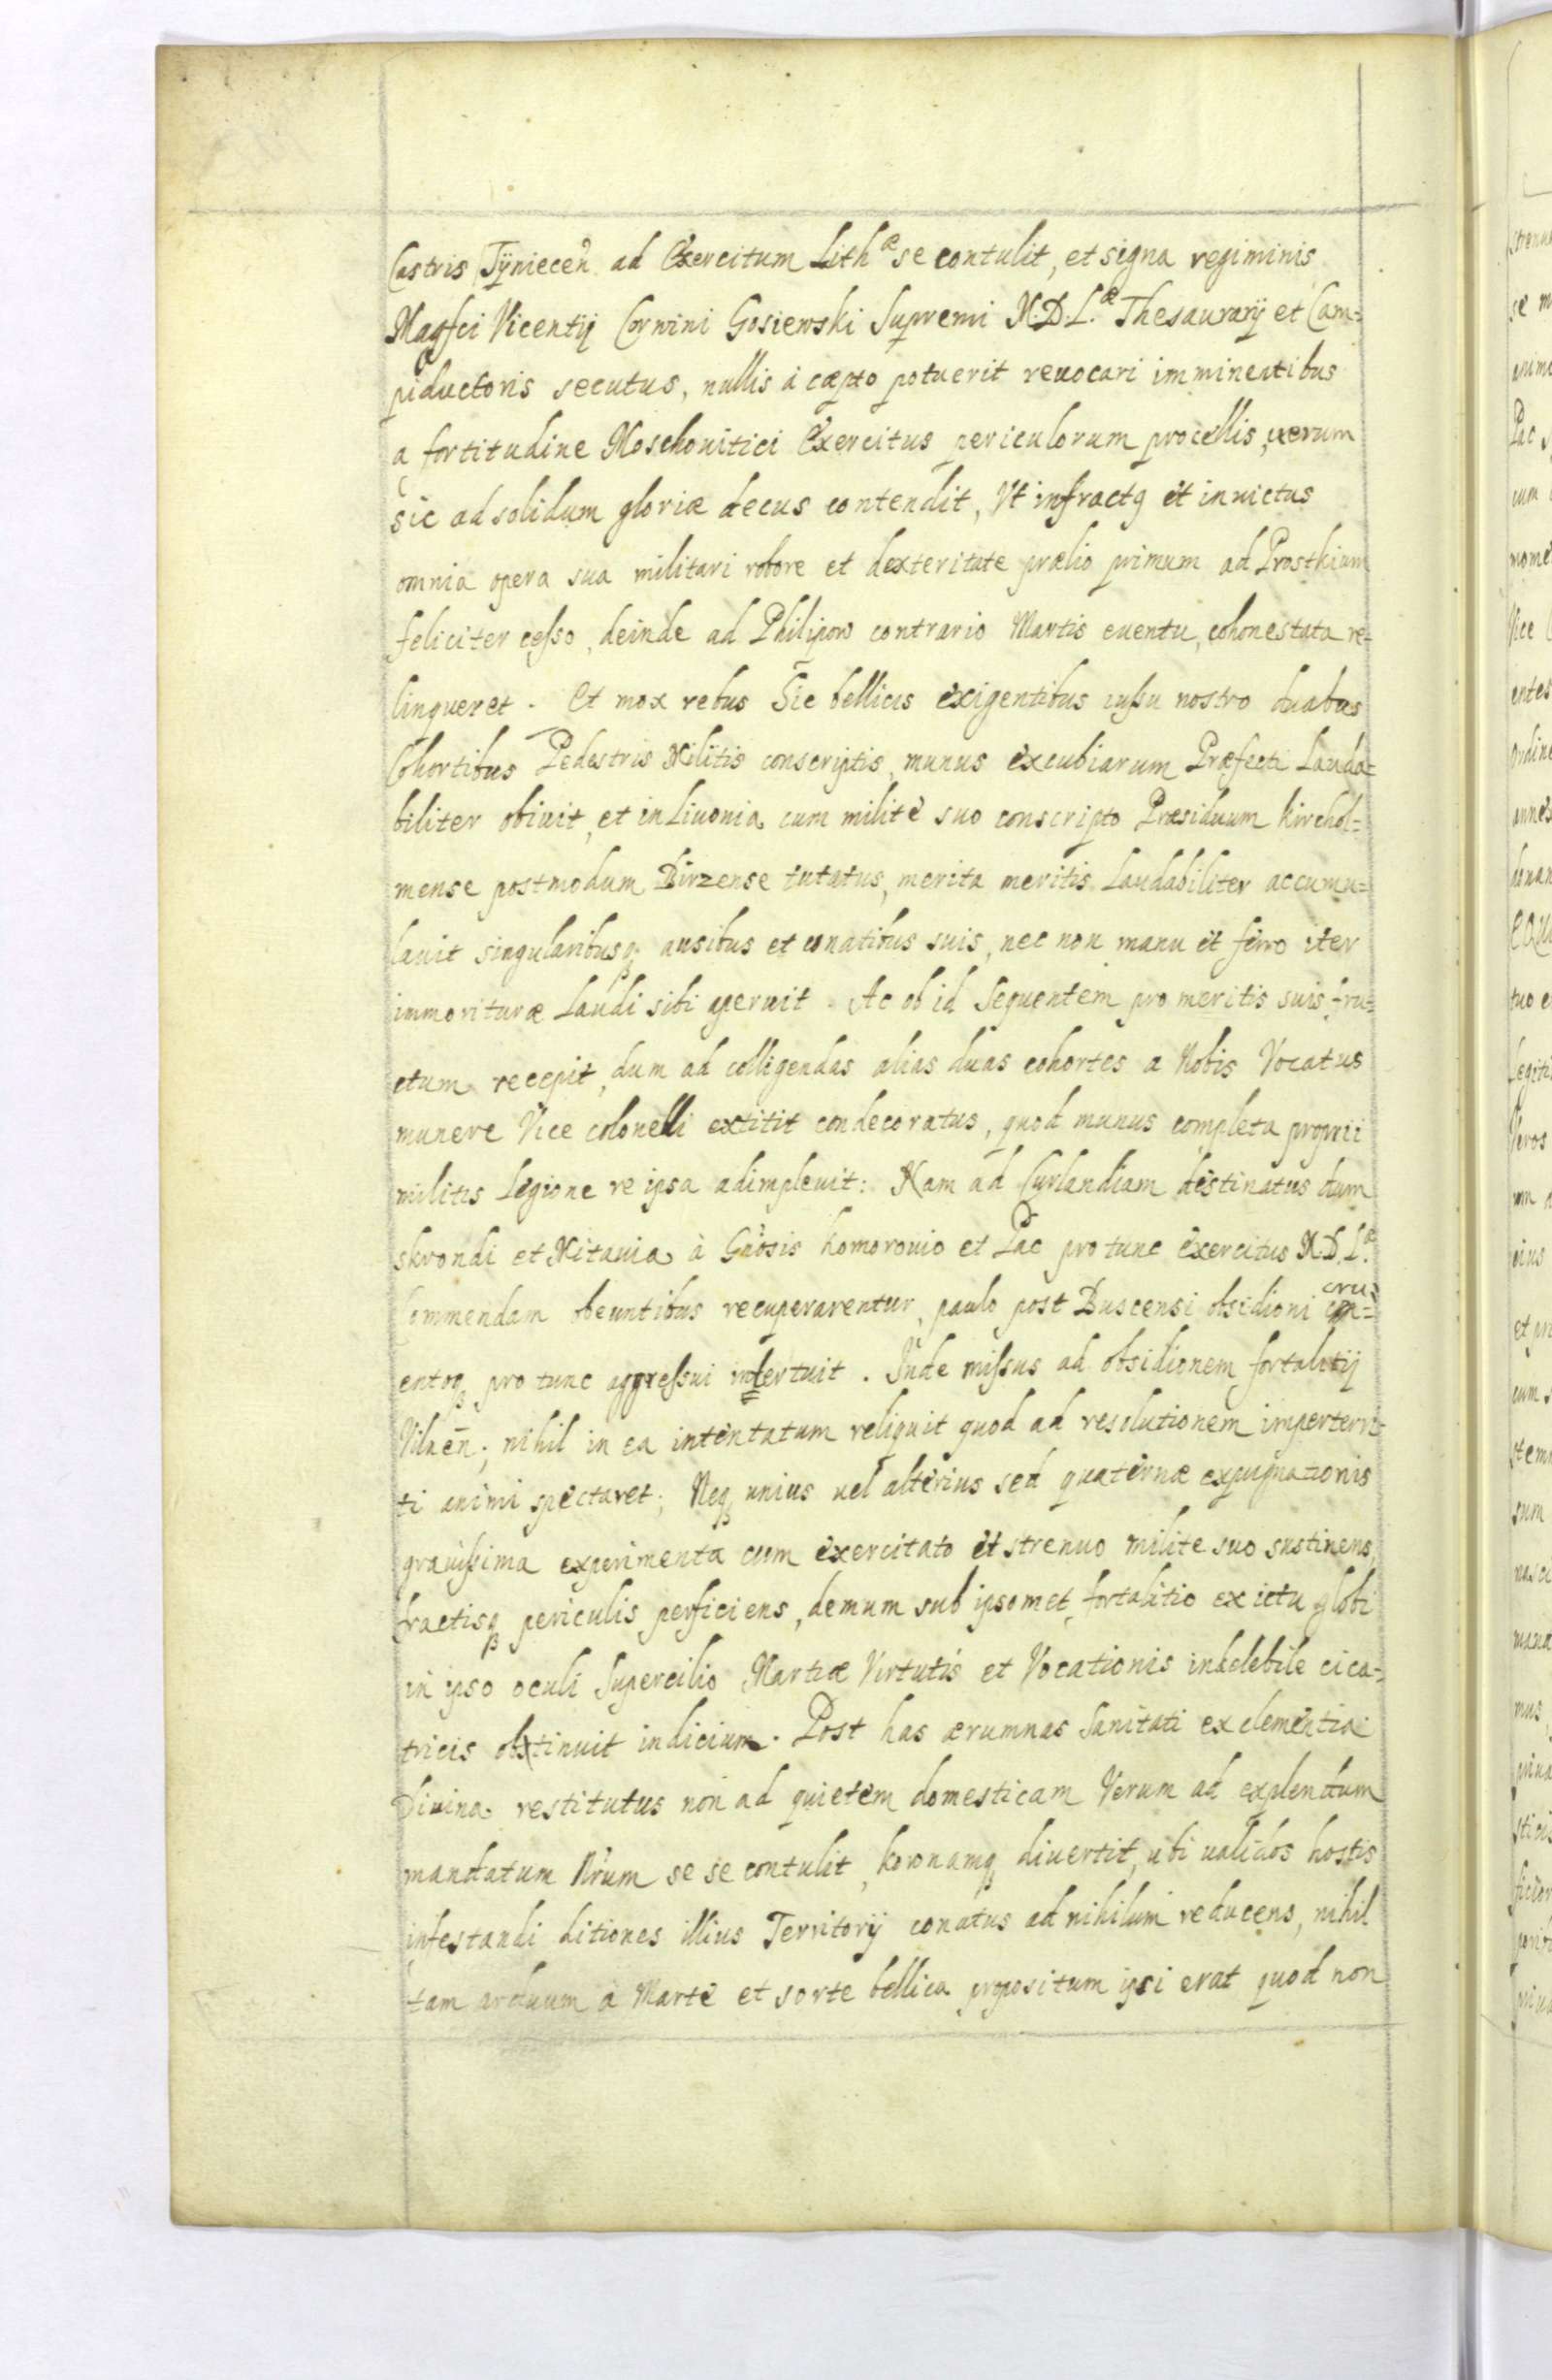 Castris Tÿniecen̄ ad Exercitum Lith.æ se contulit, et signa regiminis
Magfci Vicentij Corvini Gosiewski Supremi M.D.L.æ Thesaurarij et Cam=
piductoris secutus, nullis à cæpto potuerit reuocari imminentibus
a fortitudine Moschouitici Exercitus periculorum procellis, uerum
sic ad solidum gloriæ decus contendit, Vt infractq et inuictus
omnia opera sua militari robore et dexteritate prælio primum ad Prostkium
feliciter cesso, deinde ad Philipow contrario Martis euentu, cohonestata re=
linqueret. Et mox rebus Sic bellicis exigentibus iussu nostro duabus
Cohortibus Pedestris Militis conscriptis, munus excubiarum Præfecti Lauda=
biliter obiuit, et in Liuonia cum milite suo conscripto Præsidium Kirchol=
mense postmodum Birzense tutatus, merita meritis Laudabiliter accumu=
lauit singularibusq; ausibus et conatibus suis, nec non manu et ferro iter
immorituræ Laudi sibi aperuit. Ac ob id Sequentem pro meritis suis fru=
ctum recepit, dum ad colligendas alias duas cohortes a Nobis Vocatus
munere Vice colonelli extitit condecoratus, quod munus completa proprii
militis Legione re ipsa adimpleuit: Nam ad Curlandiam destinatus dum
skrondi et Mitauia à Gñosis Komorouio et Pac pro tunc Exercitus M.D.L.æ
Commendam obeuntibus recuperarentur, paulo post Buscensi obsidioni cru=
entoq pro tunc aggressui insertuit. Inde missus ad obsidionem fortalitij
Vilnen̄; nihil in ea intentatum reliquit quod ad resolutionem imperterri=
ti animi spectaret; Neq unius uel alterius sed quaternæ expugnationis
grauissima experimenta cum exercitato et strenuo milite suo sustinens,
fractisq periculis perficiens, demum sub ipsomet fortalitio ex ictu globi
in ipso oculi Supercilio Martiæ Virtutis et Vocationis indelebile cica=
tricis obtinuit indicium. Post has ærumnas Sanitati ex clementia
Diuina restitutus non ad quietem domesticam Verum ad explendum
mandatum Nr̃um se se contulit, Kownamq diuertit, ubi ualidos hostis
infestandi ditiones illius Territorij conatus ad nihilum reducens, nihil
tam arduum a Marte et sorte bellica propositum ipsi erat quod non